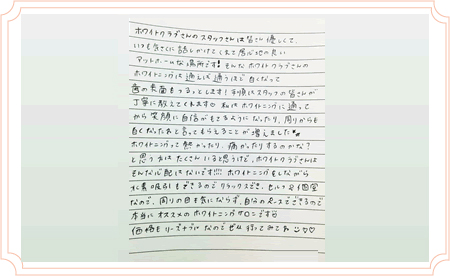 ホワイトクラブさんのスタッフさんは皆さん優しくて、
いつも気さくに話しかけてくれて居心地の良い
アットホームな場所です！そんなホワイトクラブさんの
ホワイトニングは通えば通うほど白くなって
歯の表面もつるっとします！手順はスタッフの皆さんが
丁寧に教えてくれます♡ 私はホワイトニングに通って
から笑顔に自信がもてるようになったり、周りからも
白くなったねと言ってもらえることが増えました
ホワイトニングって熱かったり、痛かったりするのかな？
と思う方はたくさんいると思うけど、ホワイトクラブさんは
そんな心配はないです!!! ホワイトニングをしながら
水素の吸引もできるのでリラックスでき、セルフで個室
なので、周りの目も気にならず、自分のペースでできるので
本当にオススメのホワイトニングサロンです
価格もリーズナブルなのでぜひ行ってみてね ♡♡